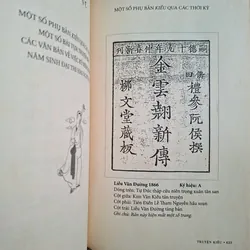 MỘT SỐ PHỤ BẢN KIỀU
MỘT SỐ BÀI TỰA
CÁC VĂN BẢN VỀ VIỆC
NĂM SINH ĐẠI THI
MỘT SỐ PHỤ BẢN KIỀU QUA CÁC THỜI KỲ
年九十德嗣
禮參阮侯撰
金雲翹新傳
柳文堂藏板
Liễu Văn Đường 1866 Ký hiệu: A
Dòng trên: Tự Đức thập cửu niên trọng xuân tân san
Cột giữa: Kim Vân Kiều tân truyện
Cột phải: Tiên Điền Lễ Tham Nguyễn hầu soạn
Cột trái: Liễu Văn Đường tàng bản.
Ghi chú: Bản này hiện mất một số trang.
TRUYỆN KIỀU